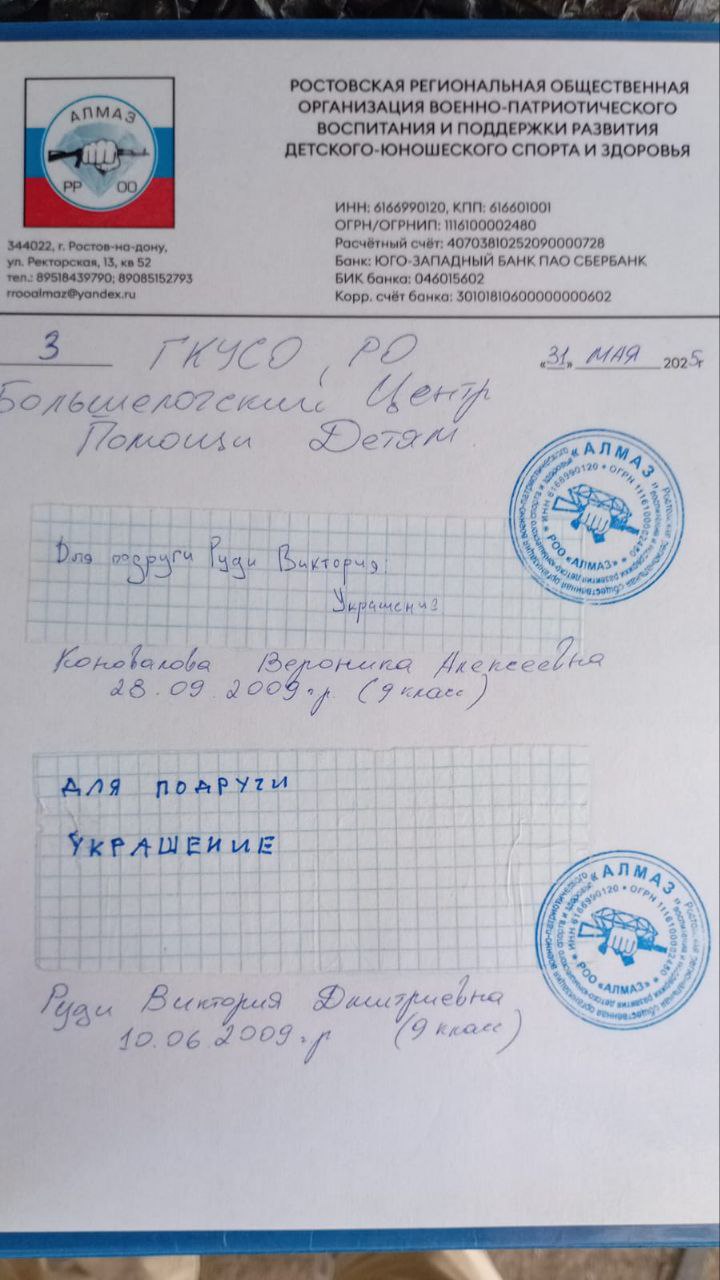 АЛМАЗ
РР ОО
РОСТОВСКАЯ РЕГИОНАЛЬНАЯ ОБЩЕСТВЕННАЯ
ОРГАНИЗАЦИЯ ВОЕННО-ПАТРИОТИЧЕСКОГО
ВОСПИТАНИЯ И ПОДДЕРЖКИ РАЗВИТИЯ
ДЕТСКОГО-ЮНОШЕСКОГО СПОРТА И ЗДОРОВЬЯ
344022, г. Ростов-на-дону,
ул. Ректорская, 13, кв 52
тел.: 89518439790; 89085152793
rrooalmaz@yandex.ru
ИНН: 6166990120, КПП: 616601001
ОГРН/ОГРНИП: 1116100002480
Расчётный счёт: 40703810252090000728
Банк: ЮГО-ЗАПАДНЫЙ БАНК ПАО СБЕРБАНК
БИК банка: 046015602
Корр. счёт банка: 30101810600000000602
3 ГКУСО, РО «31» МАЯ 2025г
Большелогский Центр
Помощи Детям
Для подруги Руди Виктория:
Украшениз
Коновалова Вероника Алексеевна
28.09.2009г.р. (9 класс)
«АЛМАЗ»
ИНН 6166990120 • ОГРН 1116100002480
РОО «АЛМАЗ»
ДЛЯ ПОДРУГИ
УКРАШЕНИЕ
Руди Виктория Дмитриевна
10.06.2009г.р (9 класс)
«АЛМАЗ»
ИНН 6166990120 • ОГРН 1116100002480
РОО «АЛМАЗ»